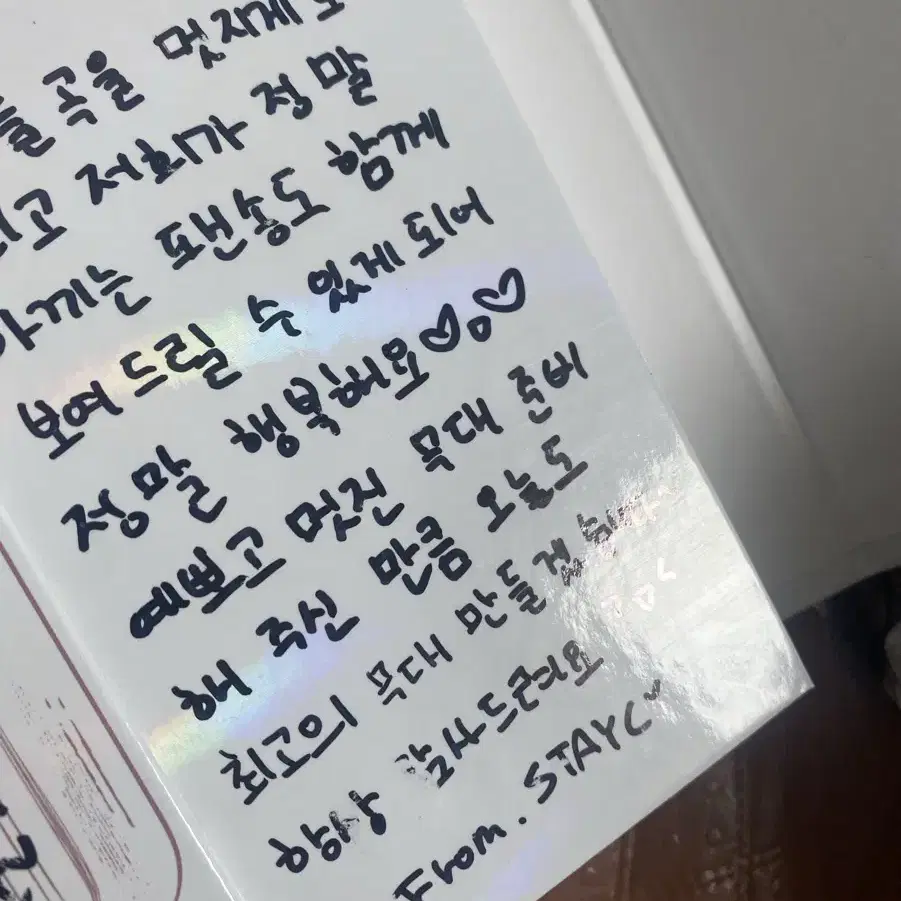 들 곡을 멋지게
고 저희가 정말
아끼는 팬송도 함께
보여드릴 수 있게되어
정말 행복해요♡.♡
예쁘고 멋진 무대 준비
해 주신 만큼 오늘도
최고의 무대 만들겠습니다
항상 감사드려요
From. STAYC